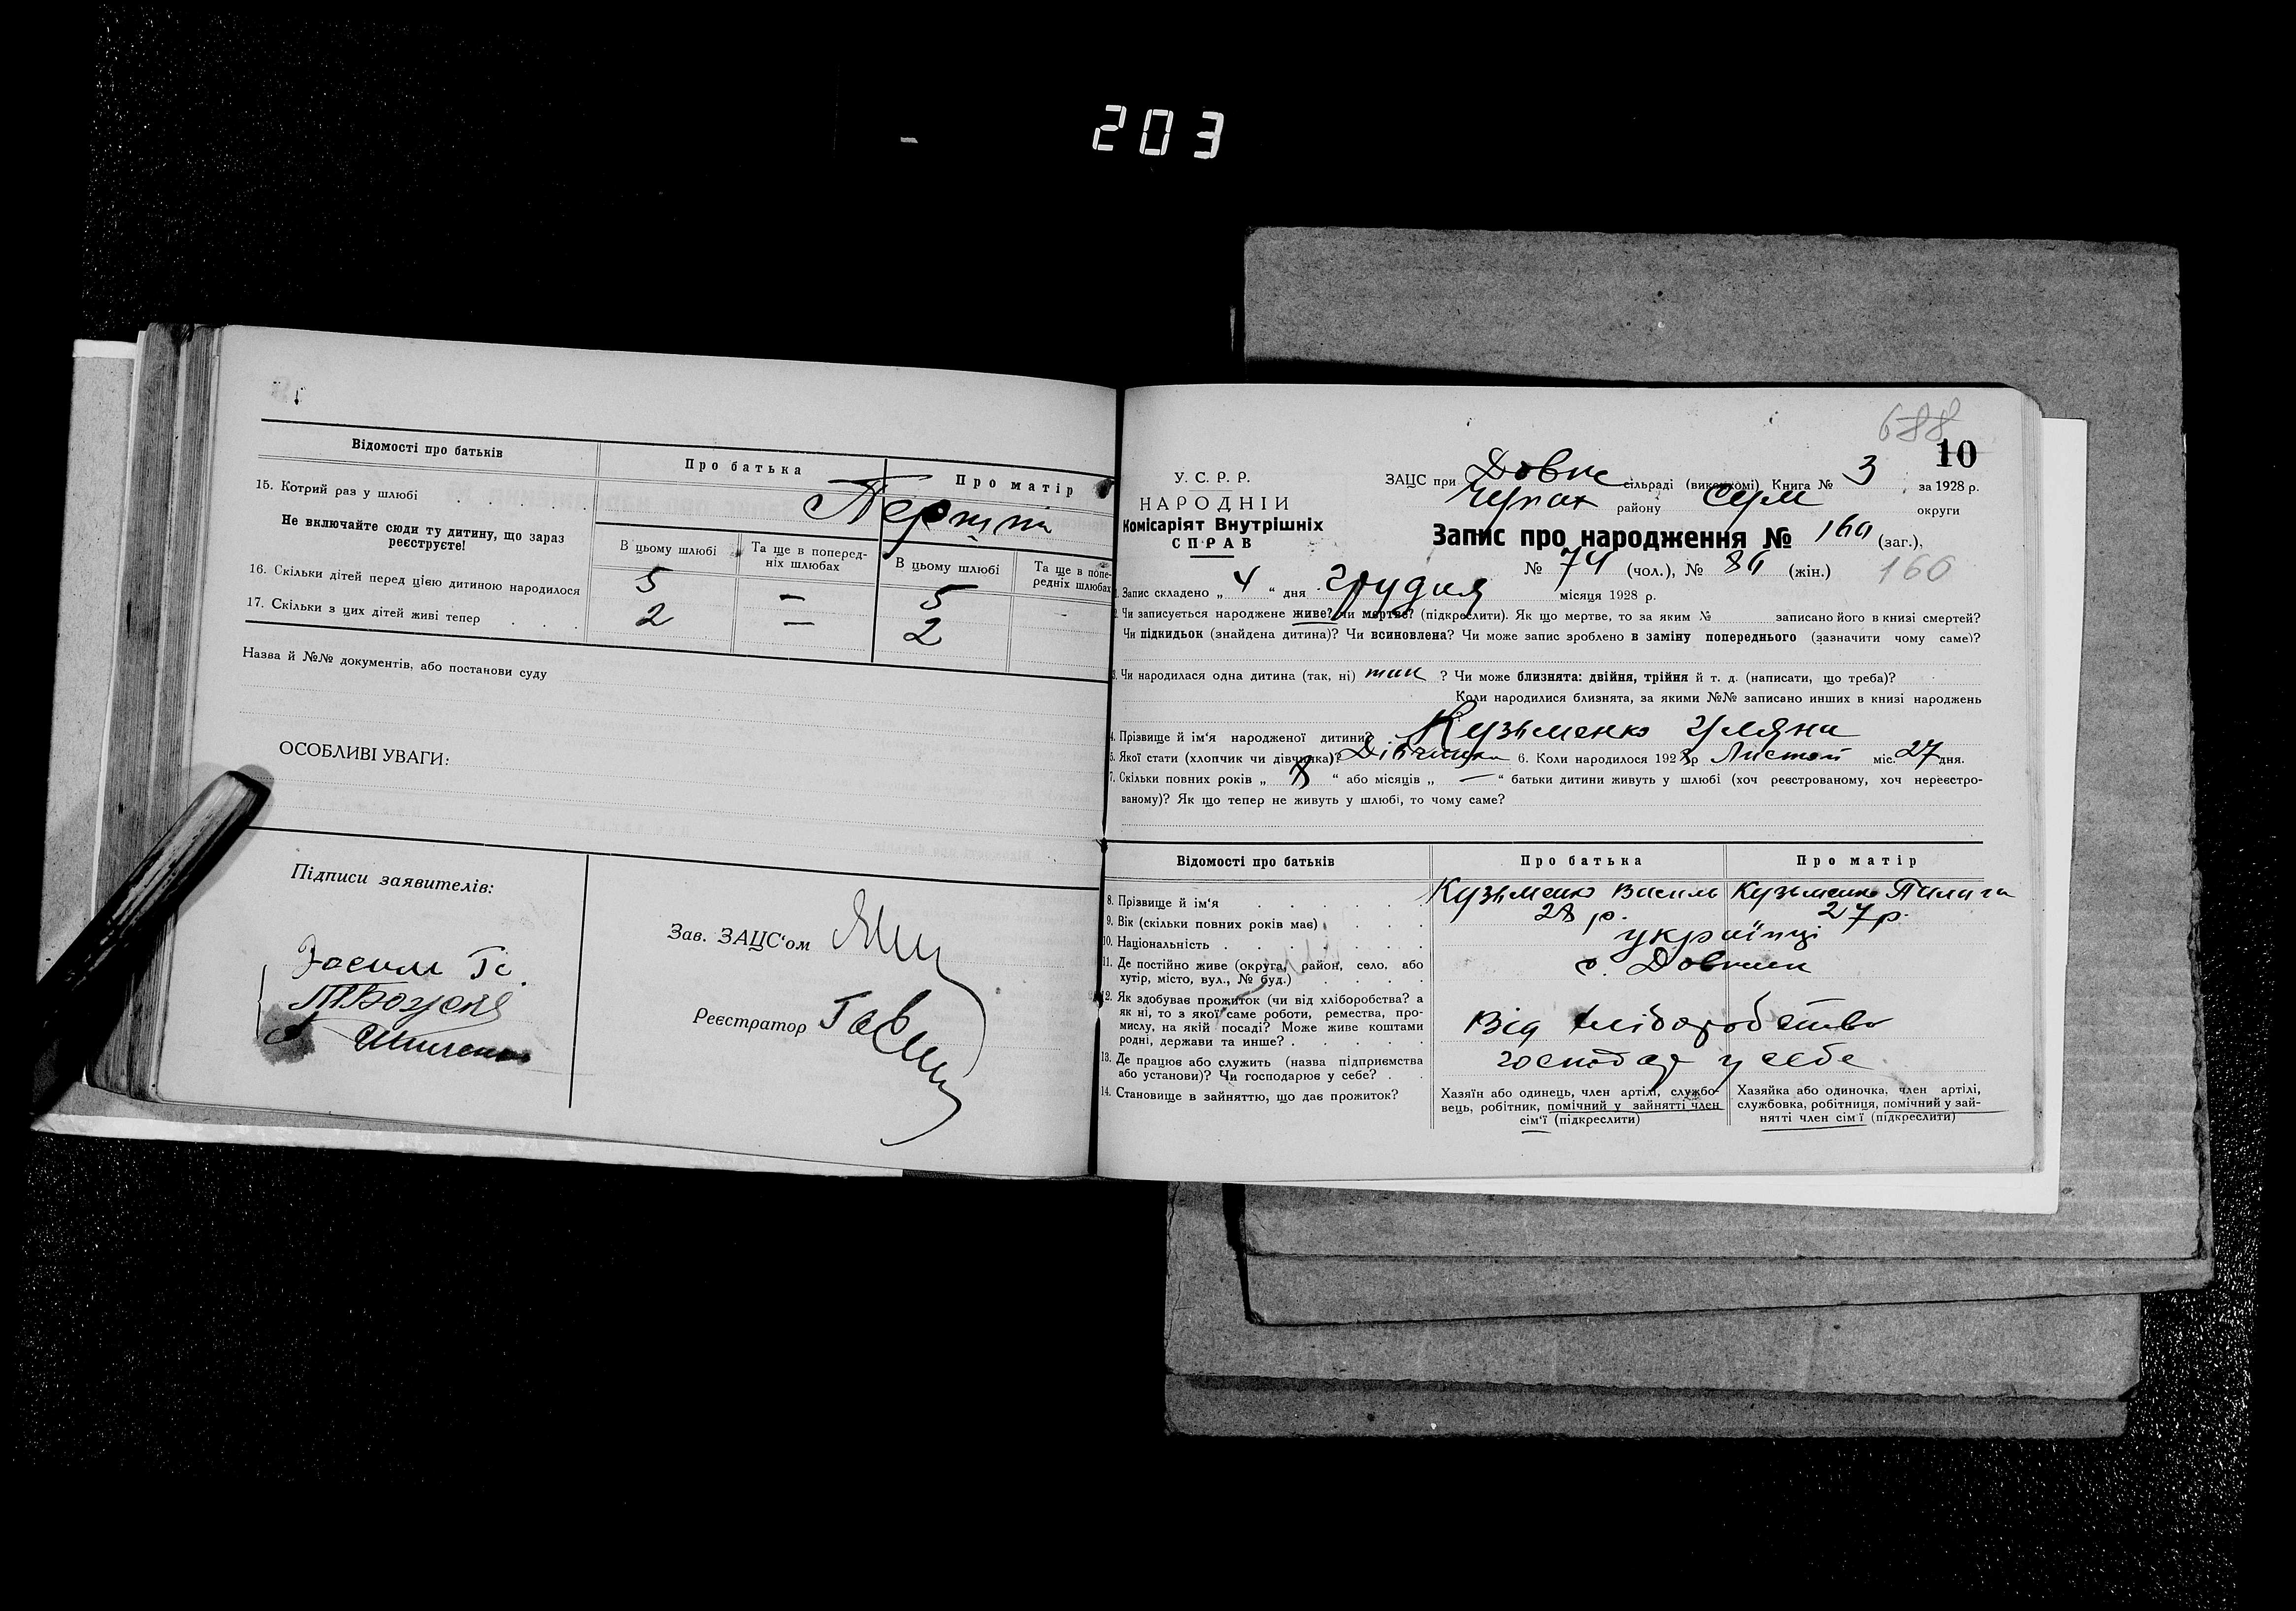 203
Відомості про батьків
Про батька
Про матір
15. Котрий раз у шлюбі
Перший
Не включайте сюди ту дитину, що зараз
реєструєте!
В цьому шлюбі
Та ще в поперед-
ніх шлюбах
В цьому шлюбі
Та ще в попе-
редніх шлюбах
16. Скільки дітей перед цією дитиною народилося
5 — 5 -
17. Скільки з цих дітей живі тепер
2 — 2
Назва й №№ документів, або постанови суду
ОСОБЛИВІ УВАГИ:
Підписи заявителів:
Зав. ЗАЦС‘ом
Реєстратор
688
10
У. С. Р. Р.
НАРОДНІЙ
Комісаріят Внутрішніх
СПРАВ
ЗАЦС при Довж сільраді (виконкомі) Книга № 3 за 1928 р.
району Сум округи
Запис про народження № 160 (заг.),
№ 74 (чол.), № 86 (жін.) 160
1. Запис складено „ 4 “ дня Грудня місяця 1928 р.
2. Чи записується народжене живе? чи мертве? (підкреслити). Як що мертве, то за яким № записано його в книзі смертей?
Чи підкидьок (знайдена дитина)? Чи всиновлена? Чи може запис зроблено в заміну попереднього (зазначити чому саме)?
3. Чи народилася одна дитина (так, ні) так ? Чи може близнята: двійня, трійня й т. д. (написати, що треба)?
Коли народилися близнята, за якими №№ записано инших в книзі народжень
4. Прізвище й ім‘я народженої дитини? Кузьменко Уляна
5. Якої стати (хлопчик чи дівчинка)? Дівчинка 6. Коли народилося 1928 р Листоп міс. 27 дня.
7. Скільки повних років „ 8 “ або місяців „ — “ батьки дитини живуть у шлюбі (хоч реєстрованому, хоч нереєстро-
ваному)? Як що тепер не живуть у шлюбі, то чому саме?
Відомості про батьків
Про батька
Про матір
8. Прізвище й ім‘я
Кузьменко Василь Кузьменко
9. Вік (скільки повних років має)
28 р. 27 р.
10. Національність
українці
11. Де постійно живе (округа, район, село, або
хутір, місто, вул., № буд.)
с. Довжик
12. Як здобуває прожиток (чи від хліборобства? а
як ні, то з якої саме роботи, ремества, про-
мислу, на якій посаді? Може живе коштами
родні, держави та инше?
Від хліборобства
13. Де працює або служить (назва підприємства
або установи)? Чи господарює у себе?
господар у себе
14. Становище в зайняттю, що дає прожиток?
Хазяїн або одинець, член артілі, службо-
вець, робітник, помічний у зайнятті член
сім‘ї (підкреслити)
Хазяйка або одиночка, член артілі,
службовка, робітниця, помічний у зай-
нятті член сім‘ї (підкреслити)